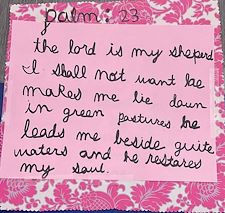 palm: 23
the lord is my sheperd
I shall not want he
makes me lie down
in green pastures he
leads me beside quite
waters and he restares
my soul.